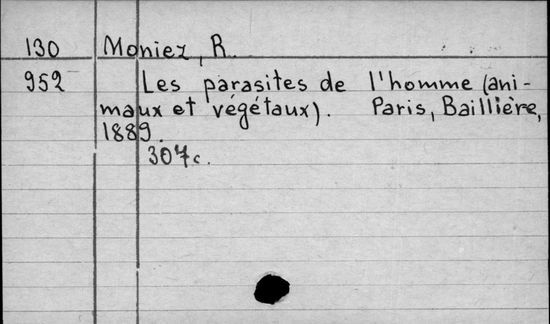 130 Moniez, R.
952 Les parasites de l'homme (ani-
maux et végétaux). Paris, Baillière,
1889.
307c.